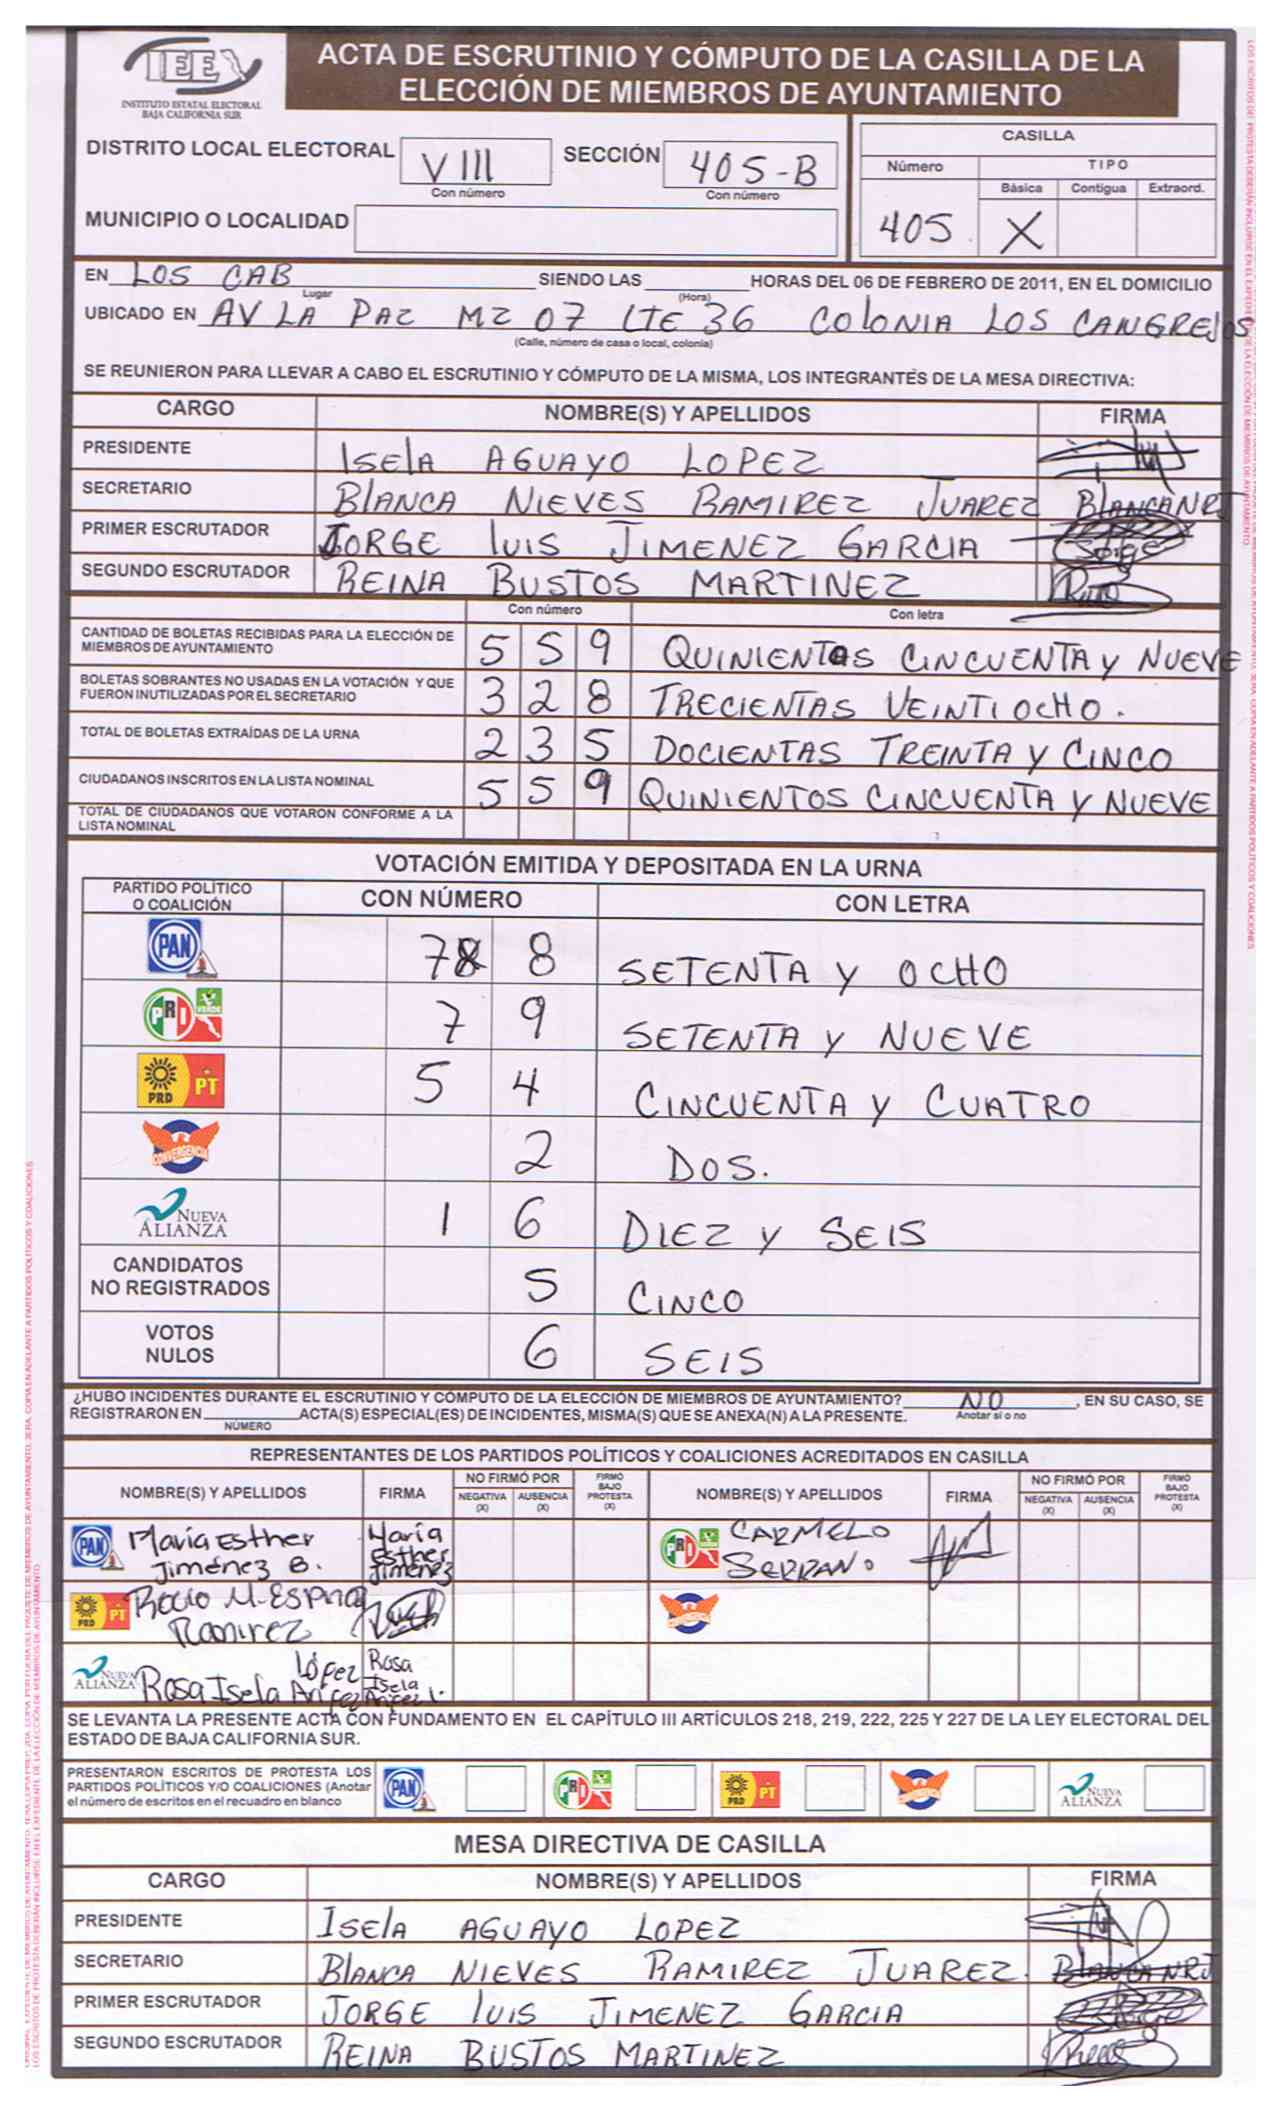 IEE
INSTITUTO ESTATAL ELECTORAL
BAJA CALIFORNIA SUR
ACTA DE ESCRUTINIO Y CÓMPUTO DE LA CASILLA DE LA
ELECCIÓN DE MIEMBROS DE AYUNTAMIENTO
DISTRITO LOCAL ELECTORAL VIII SECCIÓN 405-B
Con número Con número
MUNICIPIO O LOCALIDAD
CASILLA
Número TIPO
Básica Contigua Extraord.
405 X
EN LOS CAB SIENDO LAS HORAS DEL 06 DE FEBRERO DE 2011, EN EL DOMICILIO
Lugar (Hora)
UBICADO EN AV LA PAZ MZ 07 LTE 36 COLONIA LOS CANGREJOS
(Calle, número de casa o local, colonia)
SE REUNIERON PARA LLEVAR A CABO EL ESCRUTINIO Y CÓMPUTO DE LA MISMA, LOS INTEGRANTES DE LA MESA DIRECTIVA:
CARGO NOMBRE(S) Y APELLIDOS FIRMA
PRESIDENTE ISELA AGUAYO LOPEZ
SECRETARIO BLANCA NIEVES RAMIREZ JUAREZ BLANCANRJ
PRIMER ESCRUTADOR JORGE LUIS JIMENEZ GARCIA
SEGUNDO ESCRUTADOR REINA BUSTOS MARTINEZ
Con número Con letra
CANTIDAD DE BOLETAS RECIBIDAS PARA LA ELECCIÓN DE
MIEMBROS DE AYUNTAMIENTO 5 5 9 QUINIENTAS CINCUENTA Y NUEVE
BOLETAS SOBRANTES NO USADAS EN LA VOTACIÓN Y QUE
FUERON INUTILIZADAS POR EL SECRETARIO 3 2 8 TRECIENTAS VEINTIOCHO.
TOTAL DE BOLETAS EXTRAÍDAS DE LA URNA 2 3 5 DOCIENTAS TREINTA Y CINCO
CIUDADANOS INSCRITOS EN LA LISTA NOMINAL 5 5 9 QUINIENTOS CINCUENTA Y NUEVE
TOTAL DE CIUDADANOS QUE VOTARON CONFORME A LA
LISTA NOMINAL
VOTACIÓN EMITIDA Y DEPOSITADA EN LA URNA
PARTIDO POLÍTICO
O COALICIÓN CON NÚMERO CON LETRA
PAN 7 8 SETENTA Y OCHO
PRI VERDE 7 9 SETENTA Y NUEVE
PRD PT 5 4 CINCUENTA Y CUATRO
CONVERGENCIA 2 DOS.
NUEVA ALIANZA 1 6 DIEZ Y SEIS
CANDIDATOS
NO REGISTRADOS 5 CINCO
VOTOS
NULOS 6 SEIS
¿HUBO INCIDENTES DURANTE EL ESCRUTINIO Y CÓMPUTO DE LA ELECCIÓN DE MIEMBROS DE AYUNTAMIENTO? NO , EN SU CASO, SE
REGISTRARON EN ACTA(S) ESPECIAL(ES) DE INCIDENTES, MISMA(S) QUE SE ANEXA(N) A LA PRESENTE. Anotar sí o no
NÚMERO
REPRESENTANTES DE LOS PARTIDOS POLÍTICOS Y COALICIONES ACREDITADOS EN CASILLA
NOMBRE(S) Y APELLIDOS FIRMA NO FIRMÓ POR NEGATIVA (X) AUSENCIA (X) FIRMÓ BAJO PROTESTA (X) NOMBRE(S) Y APELLIDOS FIRMA NO FIRMÓ POR NEGATIVA (X) AUSENCIA (X) FIRMÓ BAJO PROTESTA (X)
PAN María Esther Jiménez B. María Esther Jiménez PRI CARMELO SERRANO
PRD PT Rocio M. Espino Ramirez CONVERGENCIA
NUEVA ALIANZA Rosa Isela López Rosa Isela
SE LEVANTA LA PRESENTE ACTA CON FUNDAMENTO EN EL CAPÍTULO III ARTÍCULOS 218, 219, 222, 225 Y 227 DE LA LEY ELECTORAL DEL
ESTADO DE BAJA CALIFORNIA SUR.
PRESENTARON ESCRITOS DE PROTESTA LOS
PARTIDOS POLÍTICOS Y/O COALICIONES (Anotar
el número de escritos en el recuadro en blanco PAN PRI PRD PT NUEVA ALIANZA
MESA DIRECTIVA DE CASILLA
CARGO NOMBRE(S) Y APELLIDOS FIRMA
PRESIDENTE ISELA AGUAYO LOPEZ
SECRETARIO BLANCA NIEVES RAMIREZ JUAREZ. BLANCA NRJ
PRIMER ESCRUTADOR JORGE LUIS JIMENEZ GARCIA
SEGUNDO ESCRUTADOR REINA BUSTOS MARTINEZ